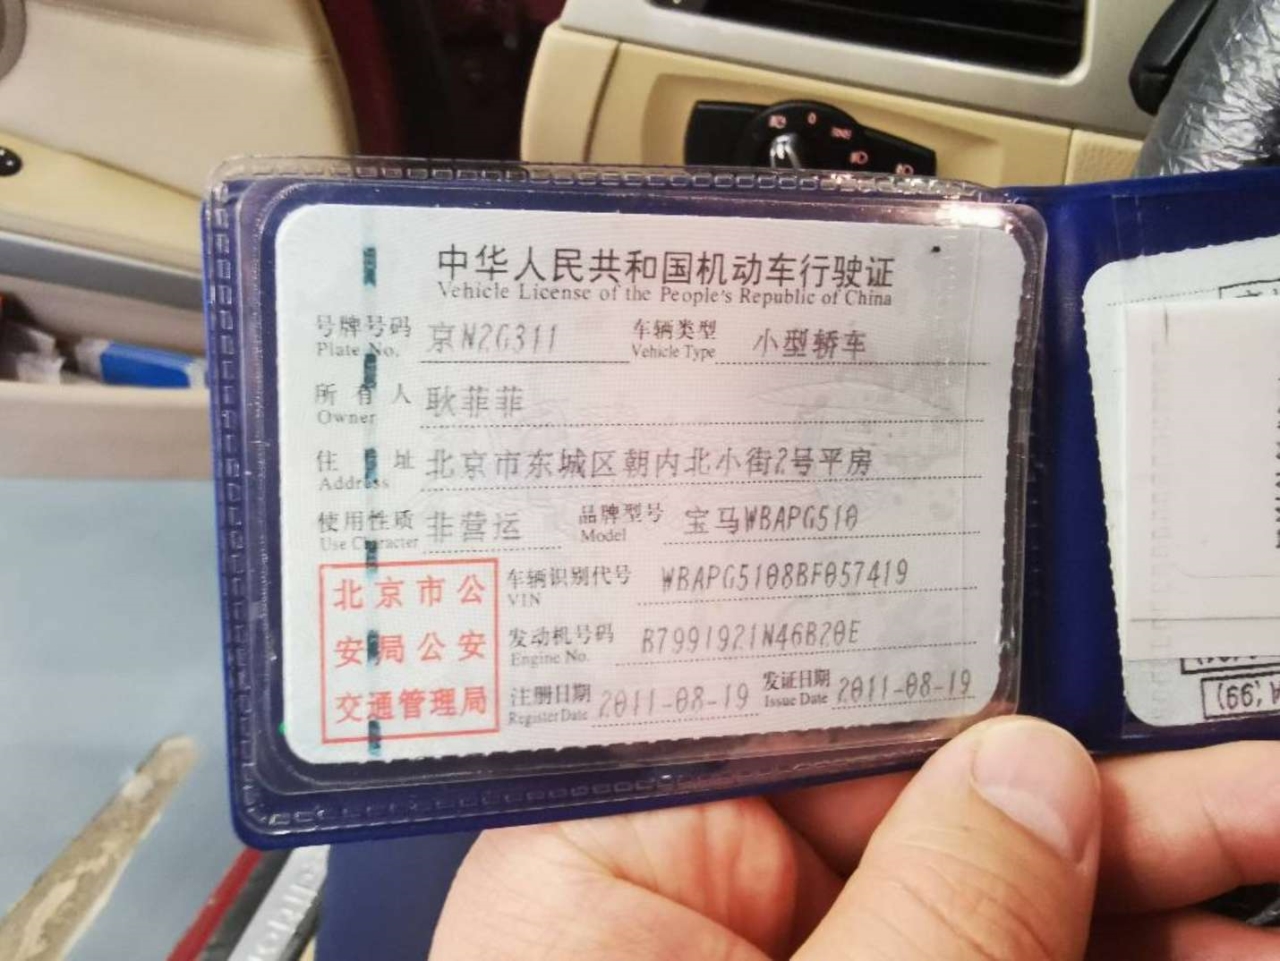 中华人民共和国机动车行驶证
Vehicle License of the People's Republic of China
号牌号码 京N2G311 车辆类型 小型轿车
Plate No. Vehicle Type
所有人 耿菲菲
Owner
住址 北京市东城区朝内北小街2号平房
Address
使用性质 非营运 品牌型号 宝马WBAPG510
Use Character Model
北京市公安局公安交通管理局
车辆识别代号 WBAPG5108BF057419
VIN
发动机号码 B7991921N46B20E
Engine No.
注册日期 2011-08-19 发证日期 2011-08-19
Register Date Issue Date
(66)